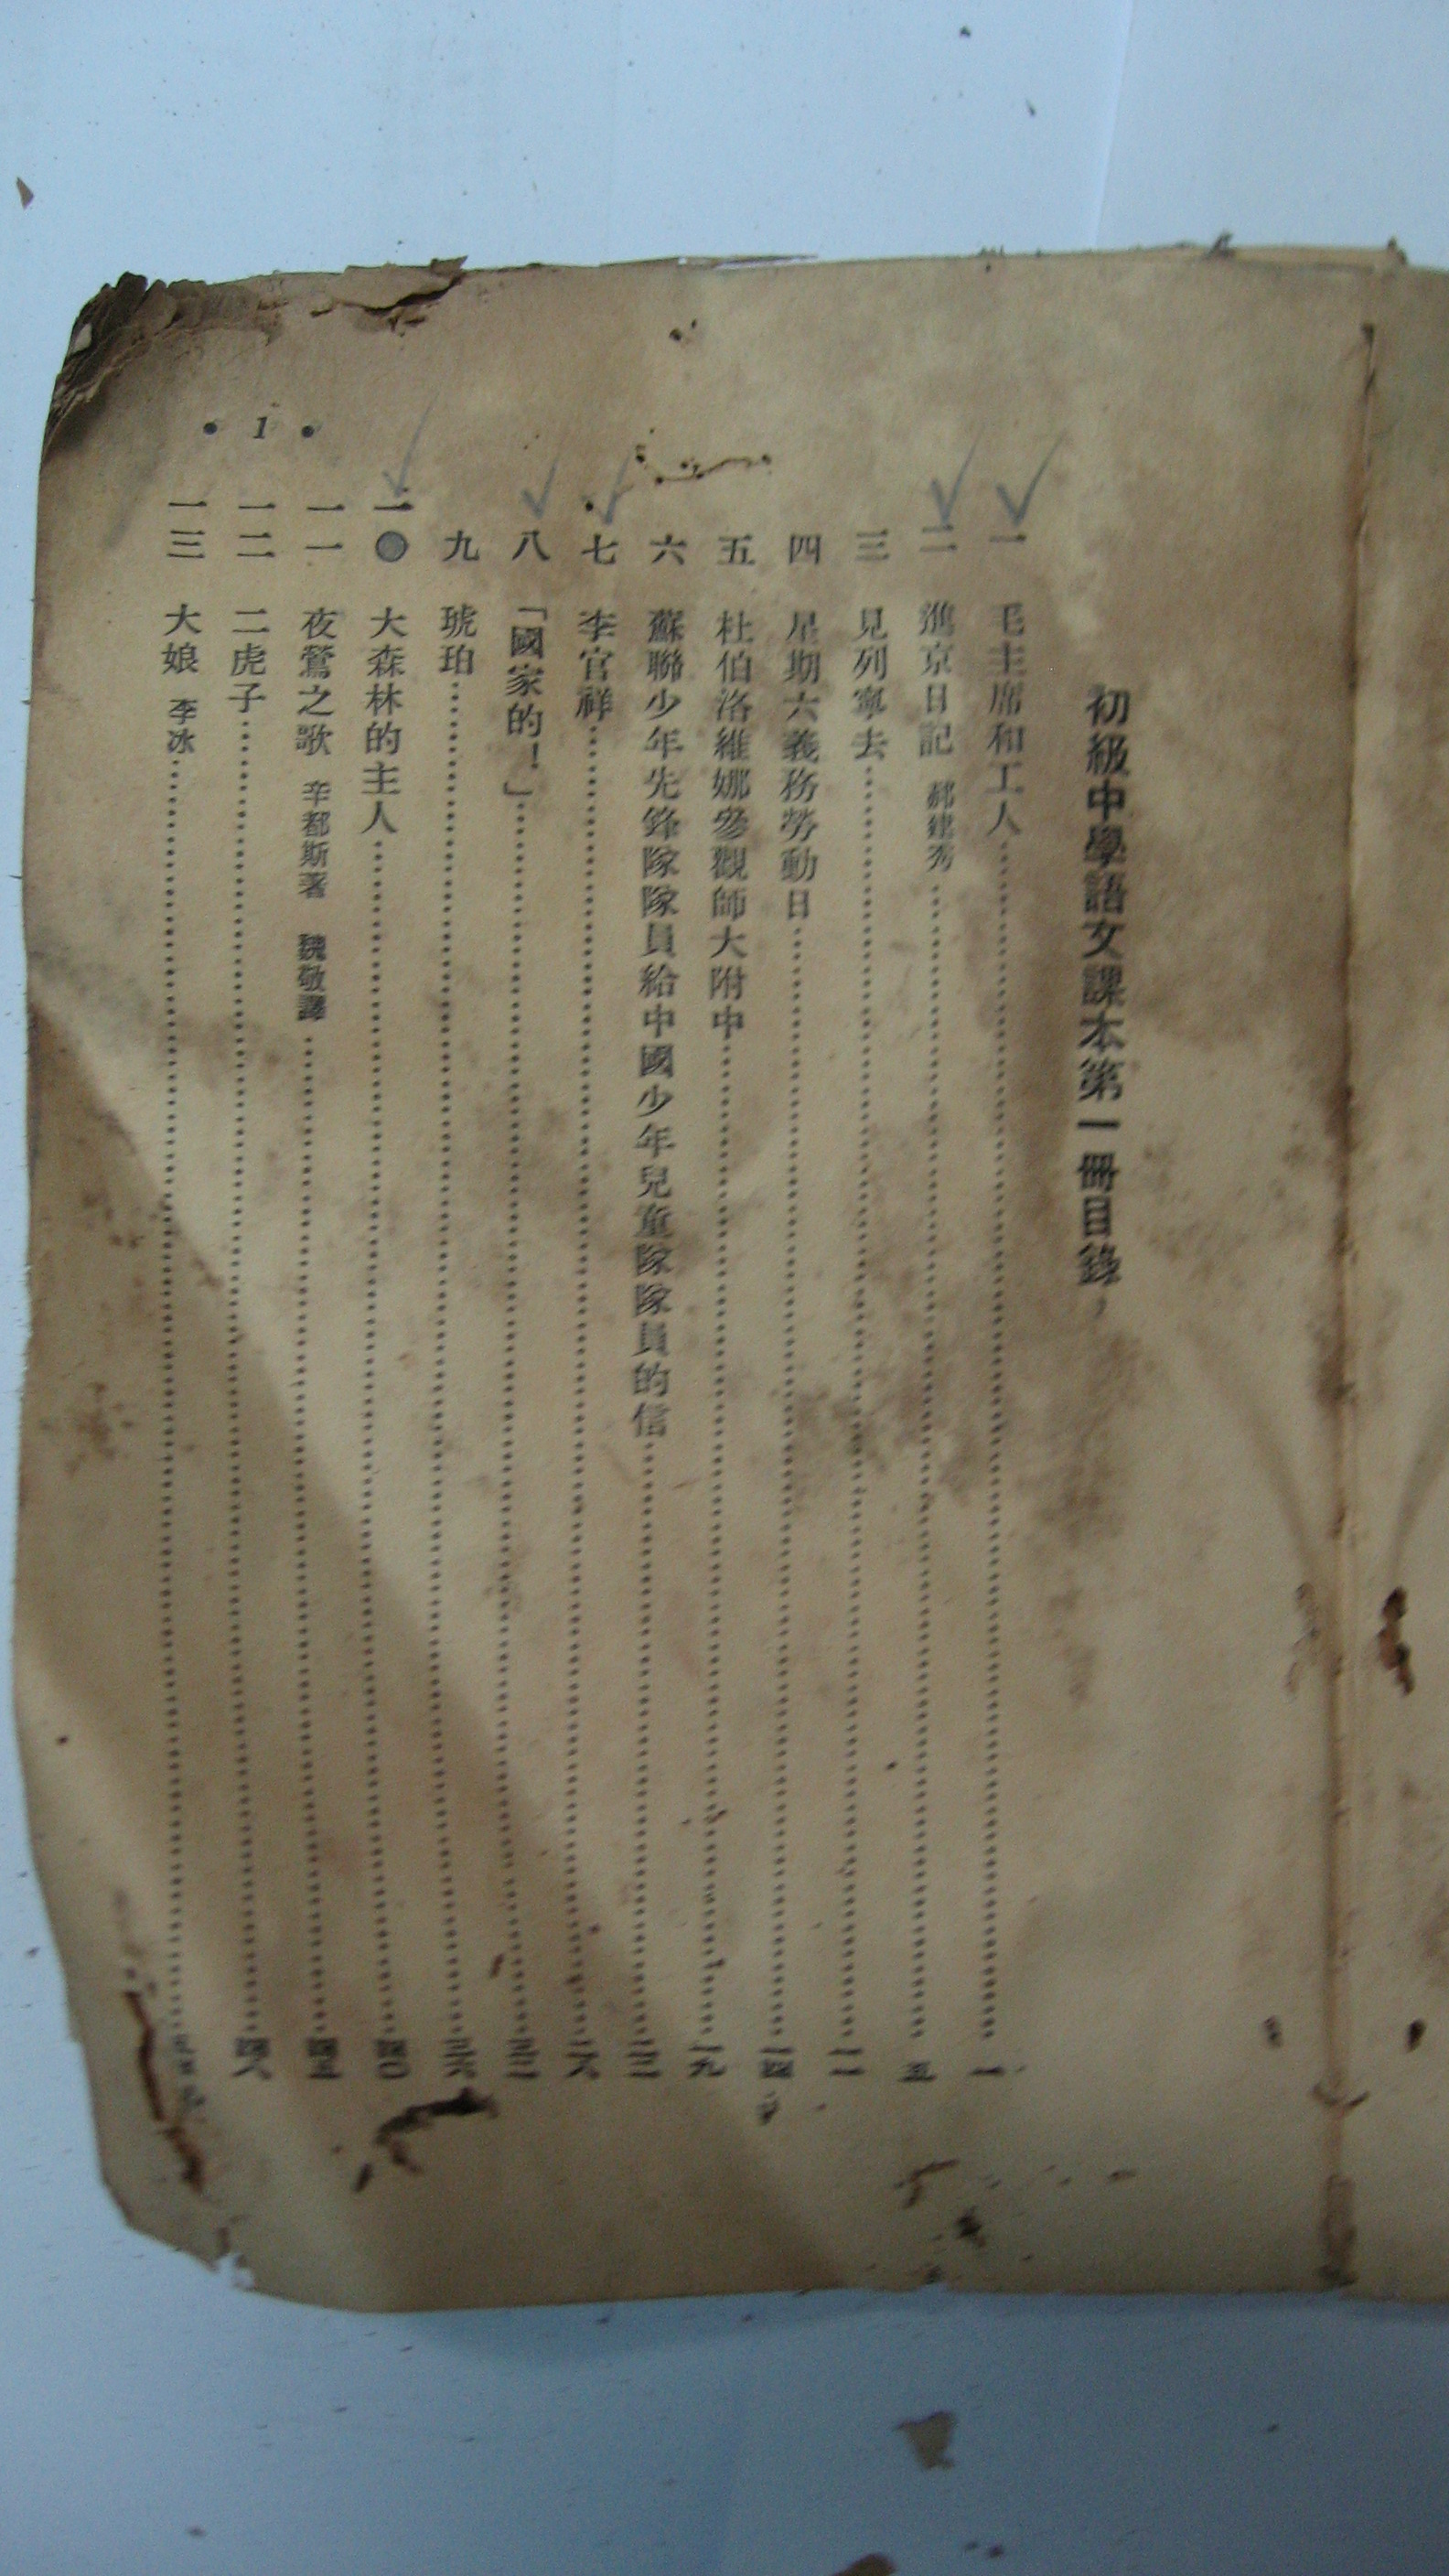 初級中學語文課本第一冊目錄
一 毛主席和工人……一
二 進京日記 郝建秀……五
三 見列寧去……一一
四 星期六義務勞動日……一四
五 杜伯洛維娜參觀師大附中……一九
六 蘇聯少年先鋒隊隊員給中國少年兒童隊隊員的信……二三
七 李官祥……二六
八 「國家的！」……三三
九 琥珀……三六
一〇 大森林的主人……四〇
一一 夜鶯之歌 辛都斯著 魏敬譯……四五
一二 二虎子……四八
一三 大娘 李冰……
• 1 •